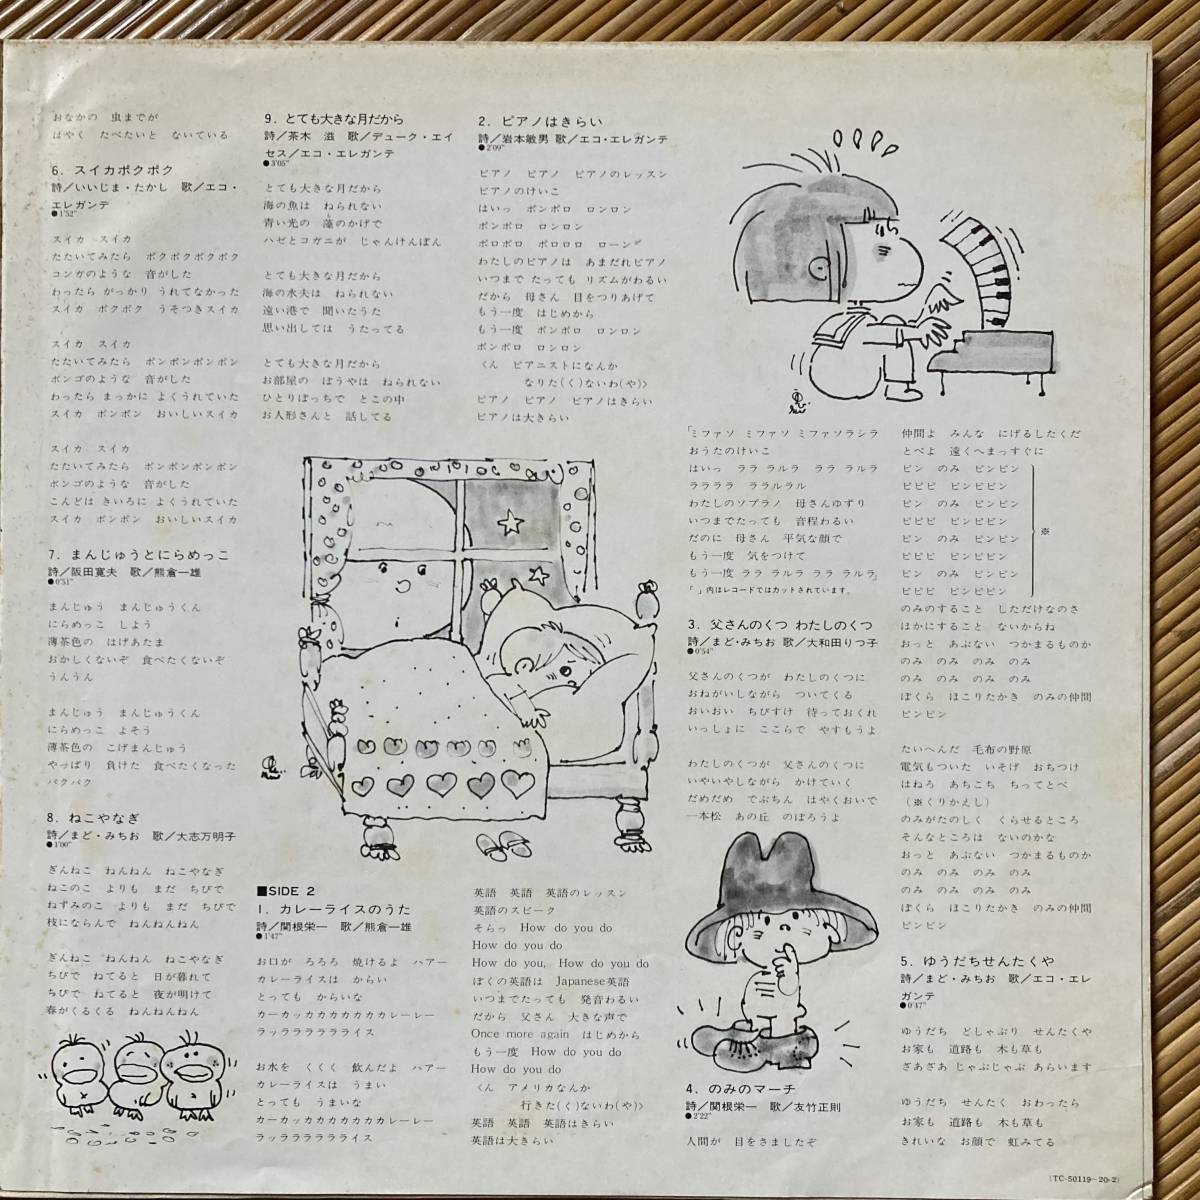 おなかの 虫までが
はやく たべたいと ないている
6. スイカポクポク
詩／いいじま・たかし 歌／エコ・
エレガンテ
●1'52"
スイカ スイカ
たたいてみたら ポクポクポクポク
コンガのような 音がした
わったら がっかり うれてなかった
スイカ ポクポク うそつきスイカ
スイカ スイカ
たたいてみたら ボンボンボンボン
ボンゴのような 音がした
わったら まっかに よくうれていた
スイカ ボンボン おいしいスイカ
スイカ スイカ
たたいてみたら ボンボンボンボン
ボンゴのような 音がした
こんどは きいろに よくうれていた
スイカ ボンボン おいしいスイカ
7. まんじゅうとにらめっこ
詩／阪田寛夫 歌／熊倉一雄
●0'51"
まんじゅう まんじゅうくん
にらめっこ しよう
薄茶色の はげあたま
おかしくないぞ 食べたくないぞ
うんうん
まんじゅう まんじゅうくん
にらめっこ よそう
薄茶色の こげまんじゅう
やっぱり 負けた 食べたくなった
パクパク
8. ねこやなぎ
詩／まど・みちお 歌／大志万明子
●1'00"
ぎんねこ ねんねん ねこやなぎ
ねこのこ よりも まだ ちびで
ねずみのこ よりも まだ ちびで
枝にならんで ねんねんねん
ぎんねこ ねんねん ねこやなぎ
ちびで ねてると 日が暮れて
ちびで ねてると 夜が明けて
春がくるくる ねんねんねん
9. とても大きな月だから
詩／茶木 滋 歌／デューク・エイ
セス／エコ・エレガンテ
●3'05"
とても大きな月だから
海の魚は ねられない
青い光の 藻のかげで
ハゼとコガニが じゃんけんぽん
とても大きな月だから
海の水夫は ねられない
遠い港で 聞いたうた
思い出しては うたってる
とても大きな月だから
お部屋の ぼうやは ねられない
ひとりぼっちで とこの中
お人形さんと 話してる
■SIDE 2
1. カレーライスのうた
詩／関根栄一 歌／熊倉一雄
●1'47"
お口が ろろろ 焼けるよ ハアー
カレーライスは からい
とっても からいな
カーカッカカカカカカレーレー
ラッララララララライス
お水を くくく 飲んだよ ハアー
カレーライスは うまい
とっても うまいな
カーカッカカカカカカレーレー
ラッララララララライス
2. ピアノはきらい
詩／岩本敏男 歌／エコ・エレガンテ
●2'09"
ピアノ ピアノ ピアノのレッスン
ピアノのけいこ
はいっ ポンポロ ロンロン
ポンポロ ロンロン
ポロポロ ポロロロ ローン
わたしのピアノは あまだれピアノ
いつまで たっても リズムがわるい
だから 母さん 目をつりあげて
もう一度 はじめから
もう一度 ポンポロ ロンロン
ポンポロ ロンロン
〈ん ピアニストになんか
なりた(く)ないわ(や)〉
ピアノ ピアノ ピアノはきらい
ピアノは大きらい
英語 英語 英語のレッスン
英語のスピーク
そらっ How do you do
How do you do
How do you, How do you do
ぼくの英語は Japanese英語
いつまでたっても 発音わるい
だから 父さん 大きな声で
Once more again はじめから
もう一度 How do you do
How do you do
〈ん アメリカなんか
行きた(く)ないわ(や)〉
英語 英語 英語はきらい
英語は大きらい
「ミファソ ミファソ ミファソラシラ
おうたのけいこ
はいっ ララ ラルラ ララ ラルラ
ララララ ララルラル
わたしのソプラノ 母さんゆずり
いつまでたっても 音程わるい
だのに 母さん 平気な顔で
もう一度 気をつけて
もう一度 ララ ラルラ ララ ラルラ」
「 」内はレコードではカットされています。
3. 父さんのくつ わたしのくつ
詩／まど・みちお 歌／大和田りつ子
●0'54"
父さんのくつが わたしのくつに
おねがいしながら ついてくる
おいおい ちびすけ 待っておくれ
いっしょに ここらで やすもうよ
わたしのくつが 父さんのくつに
いやいやしながら かけていく
だめだめ でぶちん はやくおいで
一本松 あの丘 のぼろうよ
4. のみのマーチ
詩／関根栄一 歌／友竹正則
●2'22"
人間が 目をさましたぞ
仲間よ みんな にげるしたくだ
とべよ 遠くへまっすぐに
ピン のみ ピンピン
ピピピ ピンピン
ピン のみ ピンピン
ピピピ ピンピン
ピン のみ ピンピン
ピピピ ピンピン
ピン のみ ピンピン
ピピピ ピンピン
※
のみのすること しただけなのさ
ほかにすること ないからね
おっと あぶない つかまるものか
のみ のみ のみ のみ
のみ のみ のみ のみ
ぼくら ほこりたかき のみの仲間
ピンピン
たいへんだ 毛布の野原
電気もついた いそげ おちつけ
はねろ あちこち ちってとべ
(※くりかえし)
のみがたのしく くらせるところ
そんなところは ないのかな
おっと あぶない つかまるものか
のみ のみ のみ のみ
のみ のみ のみ のみ
ぼくら ほこりたかき のみの仲間
ピンピン
5. ゆうだちせんたくや
詩／まど・みちお 歌／エコ・エレ
ガンテ
●0'47"
ゆうだち どしゃぶり せんたくや
お家も 道路も 木も草も
ざあざあ じゃぶじゃぶ あらいます
ゆうだち せんたく おわったら
お家も 道路も 木も草も
きれいな お顔で 虹みてる
(TC-50119～20-2)